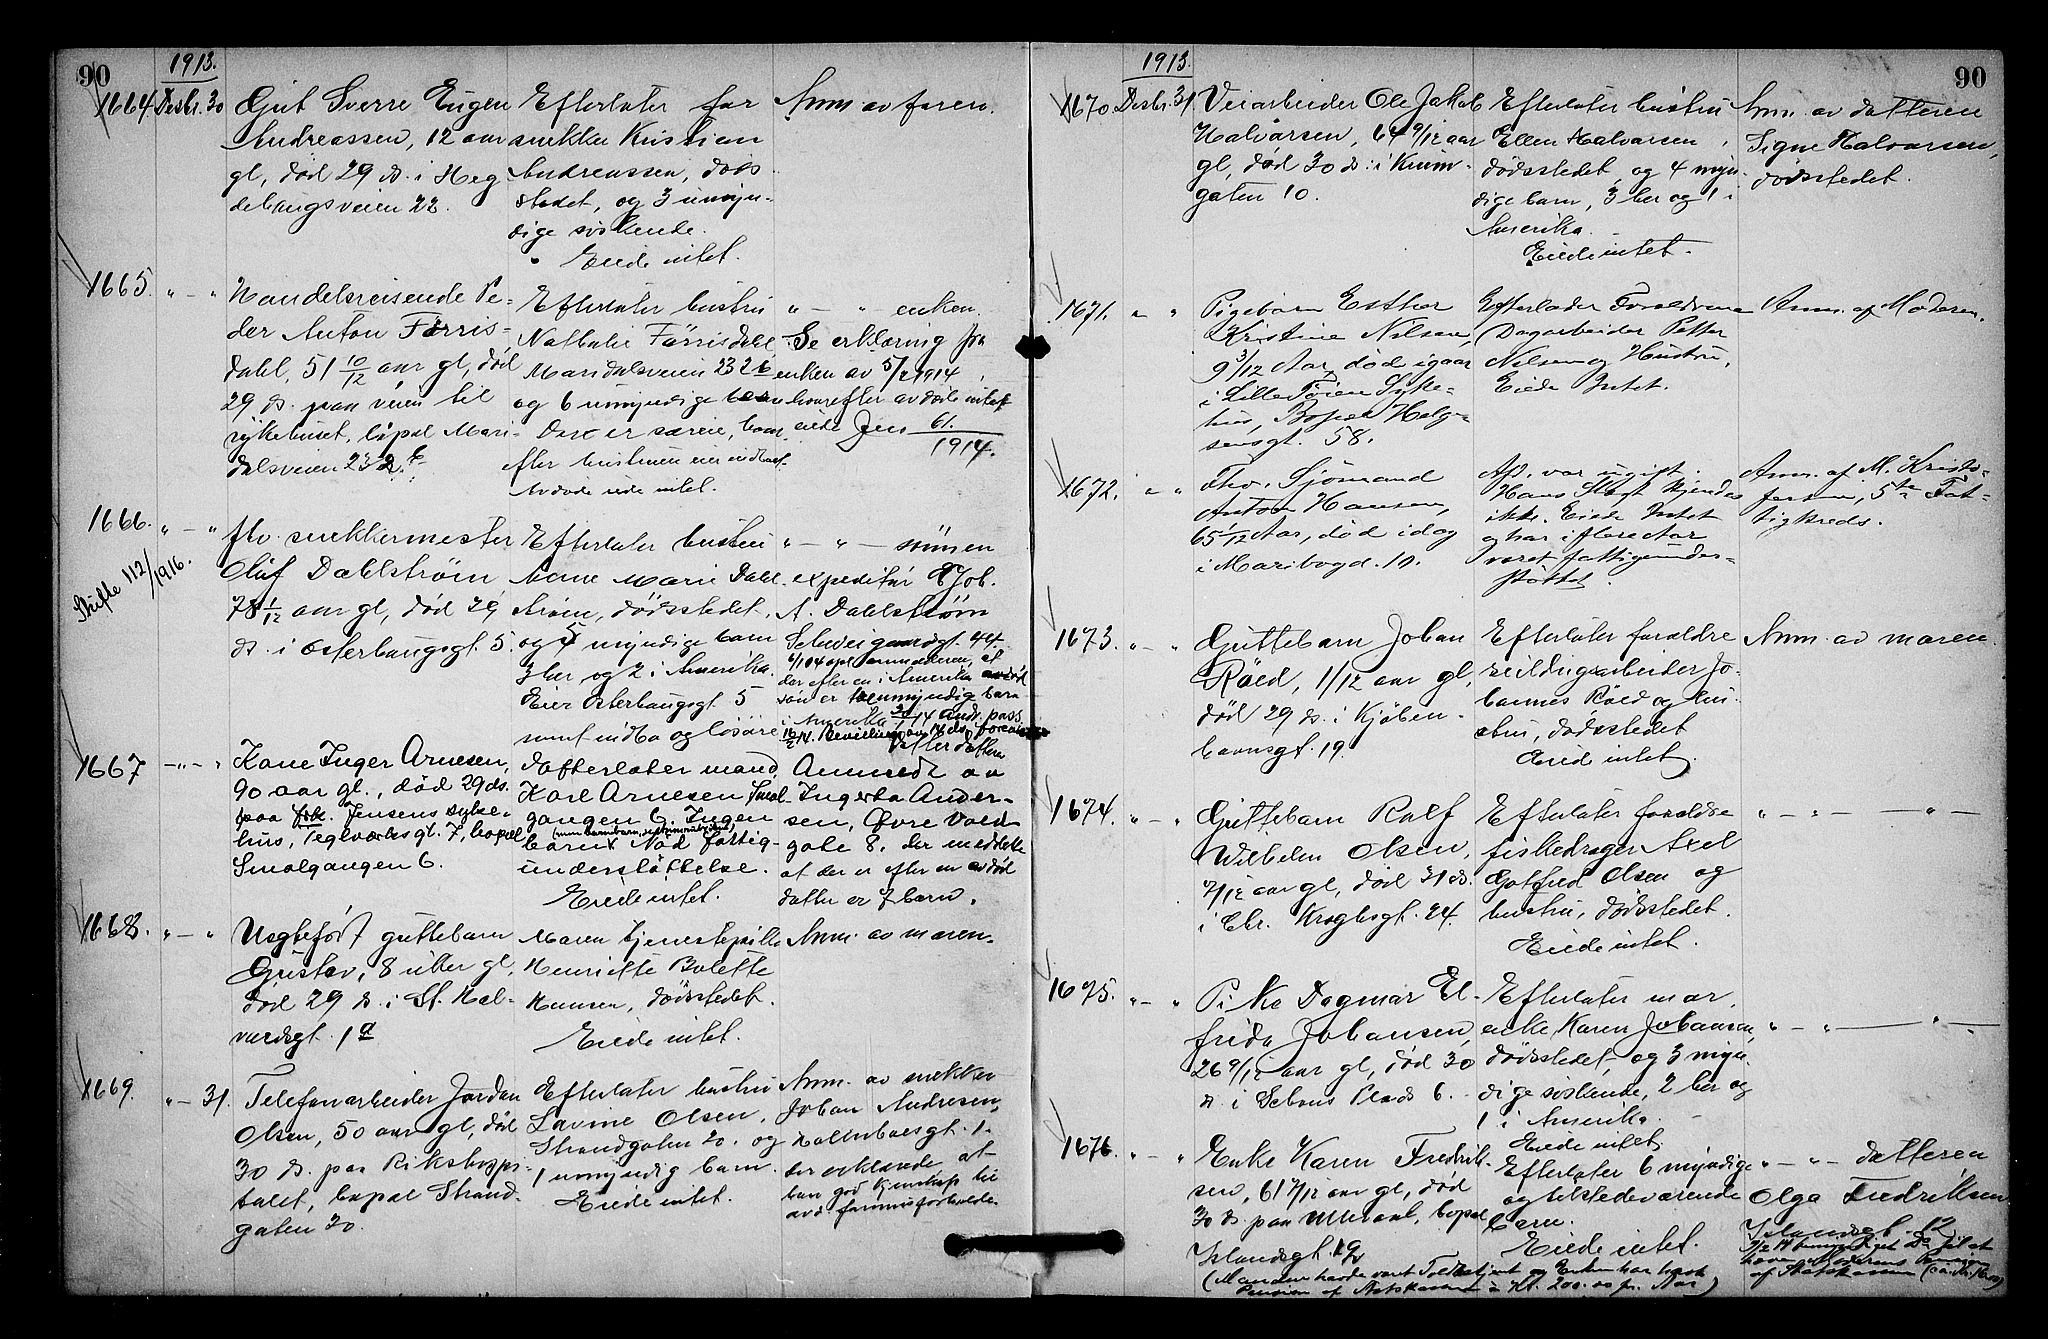 90
1913.
1664. Desbr. 30
Gut Sverre Eugen
Andreassen, 12 aar
gl, död 29 ds. i Heg
dehaugsveien 22.
Efterlater far
snekker Kristian
Andreassen, döds
stedet, og 3 umyn-
dige söskende.
Eiede intet.
Anm. av faren.
1665. " — "
Handelsreisende Pe-
der AntonFörris-
dahl, 51 10/12 aar gl, död
29 ds. paa veien til
sykehuset, bopæl Mari-
dalsveien 232 b
Efterlater hustru
Nathalie Förrisdahl
Maridalsveien 232 b
og 6 umyndige barn
efter hustruen
Avdöde eiede intet.
" — " enken.
Se erklæring fra
enken av 5/2 1914,
hvorefter avdöde intet
eiede Jnr 61.
1914.
1666. " — "
Skifte 112/1916.
fhv. snekkermester
Oluf Dahlström
78 1/12 aar gl, död 29
ds. i Österhaugsgt. 5.
Efterlater hustru
Anne Marie Dahl-
ström, dödsstedet,
og 5 myndige barn
3 her og 2 i Amerika.
Eier Österhaugsgt. 5
samt indbo og lösöre
" — " — sönnen
expeditör Joh.
A. Dahlström
Schweigaardsgt. 44.
der efter en i Amerika avdöd
sön er umyndig barn
i Amerika
efter datteren
1667 — " — "
Kone Inger Arnesen,
90 aar gl., död 29 ds.
paa frk. Jensens syke-
hus, Teglverksgt. 7, bopæl
Smalgangen 6.
Efterlater mand
Karl Arnesen Smal-
gangen 6. Ingen
barn. Nöd fattig-
understöttelse.
Eiede intet.
Anmeldt av
Ingerda Ander-
sen, Övre Vold
gate 8, der meddelte
at der er efter en avdöd
datter er 7 barn.
1668. " — "
Uegteföd guttebarn
Gustav, 8 uker gl,
död 29 ds. i St. Hal-
vardsgt. 1 a
Moren tjenestepike
Henriette Bolette
Hansen, dödsstedet.
Eiede intet.
Anm. av moren.
1669. " — 31.
Telefonarbeider Jordan
Olsen, 50 aar gl, död
30 ds. paa Rikshospi-
talet, bopæl Strand-
gaten 20.
Efterlater hustru
Lavine Olsen,
Strandgaten 20. og
1 umyndig barn.
Eiede intet.
Anm. av snekker
Johan Andresen,
gt. 1.
der erklærede at
han god kjendskap til
avd. formuesforholde
1913.
90
1670. Desbr. 31.
Veiarbeider Ole Jakob
Halvarsen, 64 9/12 aar
gl, död 30 ds. i Krum-
gaten 10.
Efterlater hustru
Ellen Halvarsen,
dödsstedet, og 4 myn-
dige barn, 3 her og 1 i
Amerika.
Eiede intet.
Anm. av datteren
Signe Halvarsen,
dödsstedet.
1671. " "
Pigebarn Esther
Kristine Nilsen,
9 3/12 Aar, död igaar
i Lille Töien Syke-
hus, Bopæl Helg-
sensgt. 58.
Efterlader Forældrene
Dagarbeider Petter
Nilsen og Hustru,
Eiede Intet.
Anm. af Moderen.
1672. " — "
Fhv. Sjömand
Anton Hansen,
65 1/12 Aar, död idag
i Maribogd. 10.
Afd. var ugift.
Hans Slegt kjendes
ikke. Eiede Intet
og har i flere Aar
været fattigunder-
stöttet.
Anm. af M. Kristo-
fersen, 5te Fat-
tigkreds.
1673. " — "
Guttebarn Johan
Röed, 1/12 aar gl,
död 29 ds. i Kjöben-
havnsgt. 19.
Efterlater forældre
arbeider Jo-
hannes Röed og hu-
stru, dödsstedet
Eiede intet.
Anm. av moren.
1674. " — "
Guttebarn Rolf
Wilhelm Olsen,
7/12 aar gl, död 31 ds.
i Chr. Kroghsgt. 24.
Efterlater forældre
fiskedrager Axel
Gotfred Olsen og
hustru, dödsstedet.
Eiede intet.
" — " — " —
1675. " — "
Pike Dagmar El-
frida Johansen,
26 9/12 aar gl, död 30
ds. i Schous Plads 6.
Efterlater mor,
enke Karen Johansen,
dödsstedet, og 3 myn-
dige söskende, 2 her og
1 i Amerika.
Eiede intet.
" — " — " —
1676. " — "
Enke Karen Fredrik-
sen, 61 7/12 aar gl, död
30 ds. paa Ullevaal, bopæl
Islandsgt. 12
(Manden havde været Toldbetjent og Enken har havt
Pension af Statskassen à Kr. 200.00 pr. Aar)
Efterlater 6 myndige
og tilstedeværende
barn.
Eiede intet.
" — " — datteren
Olga Fredriksen
Islandsgt. 12
af Statskassen